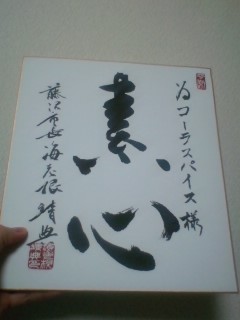 為コーラスパイス様
素心
藤沢市長海老根靖典